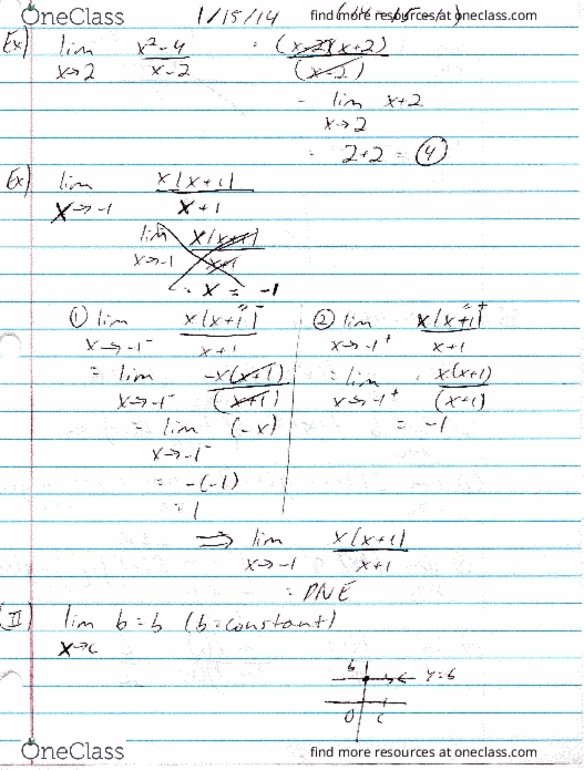 OneClass 1/15/14 find more resources at oneclass.com
Ex) lim x→2 x²-4 / x-2 = (x-2)(x+2) / (x-2)
= lim x→2 x+2
= 2+2 = 4
Ex) lim x→-1 x|x+1| / x+1
lim x→-1 x|x+1| / x+1
= x = -1
① lim x→-1⁻ x|x+1| / x+1
= lim x→-1⁻ -x(x+1) / (x+1)
= lim x→-1⁻ (-x)
= -(-1)
= 1
② lim x→-1⁺ x|x+1| / x+1
= lim x→-1⁺ x(x+1) / (x+1)
= -1
⇒ lim x→-1 x|x+1| / x+1
= DNE
II) lim x→c b=b (b=constant)
b y=b
0 c
OneClass find more resources at oneclass.com